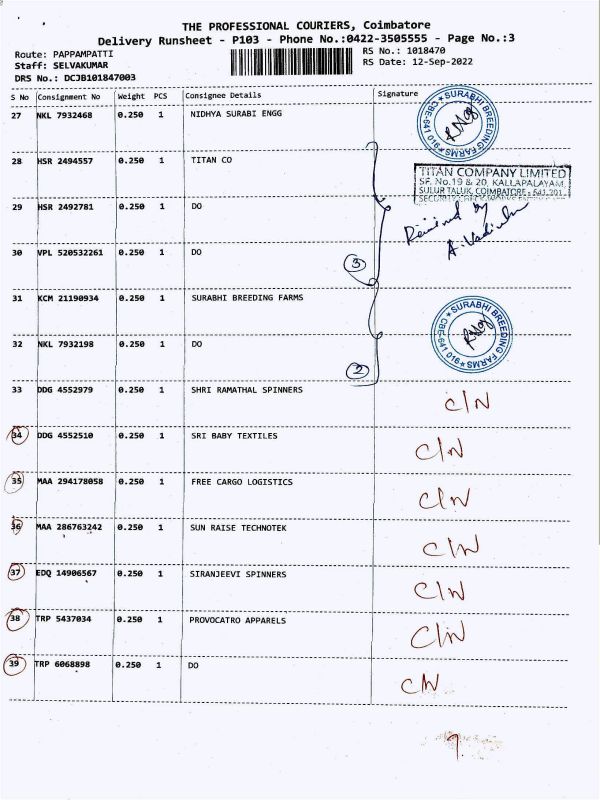 THE PROFESSIONAL COURIERS, Coimbatore
Delivery Runsheet - P103 - Phone No.:0422-3505555 - Page No.:3
Route: PAPPAMPATTI
RS No.: 1018470
Staff: SELVAKUMAR
RS Date: 12-Sep-2022
DRS No.: DCJB101847003
S No Consignment No Weight PCS Consignee Details Signature
27 NKL 7932468 0.250 1 NIDHYA SURABI ENGG
SURABHI BREEDING FARMS CBE-641 016
28 HSR 2494557 0.250 1 TITAN CO
TITAN COMPANY LIMITED
SF. No.19 & 20, KALLAPALAYAM,
SULUR TALUK, COIMBATORE - 641 201
29 HSR 2492781 0.250 1 DO
Received by
30 VPL 520532261 0.250 1 DO
3
31 KCM 21190934 0.250 1 SURABHI BREEDING FARMS
SURABHI BREEDING FARMS CBE-641 016
32 NKL 7932198 0.250 1 DO
2
33 DDG 4552979 0.250 1 SHRI RAMATHAL SPINNERS C/N
34 DDG 4552510 0.250 1 SRI BABY TEXTILES C/N
35 MAA 294178058 0.250 1 FREE CARGO LOGISTICS C/N
36 MAA 286763242 0.250 1 SUN RAISE TECHNOTEK C/N
37 EDQ 14906567 0.250 1 SIRANJEEVI SPINNERS C/N
38 TRP 5437034 0.250 1 PROVOCATRO APPARELS C/N
39 TRP 6068898 0.250 1 DO C/N
9.